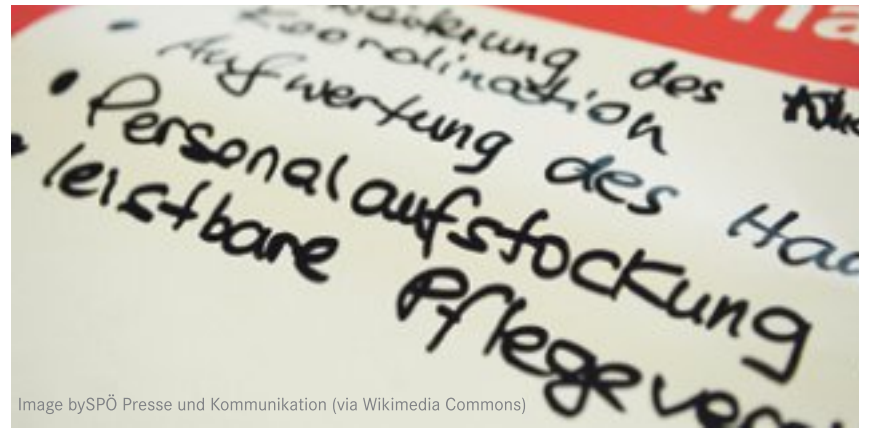 des
Koordination
Aufwertung des
Personalaufstockung
leistbare Pflegever
Image bySPÖ Presse und Kommunikation (via Wikimedia Commons)